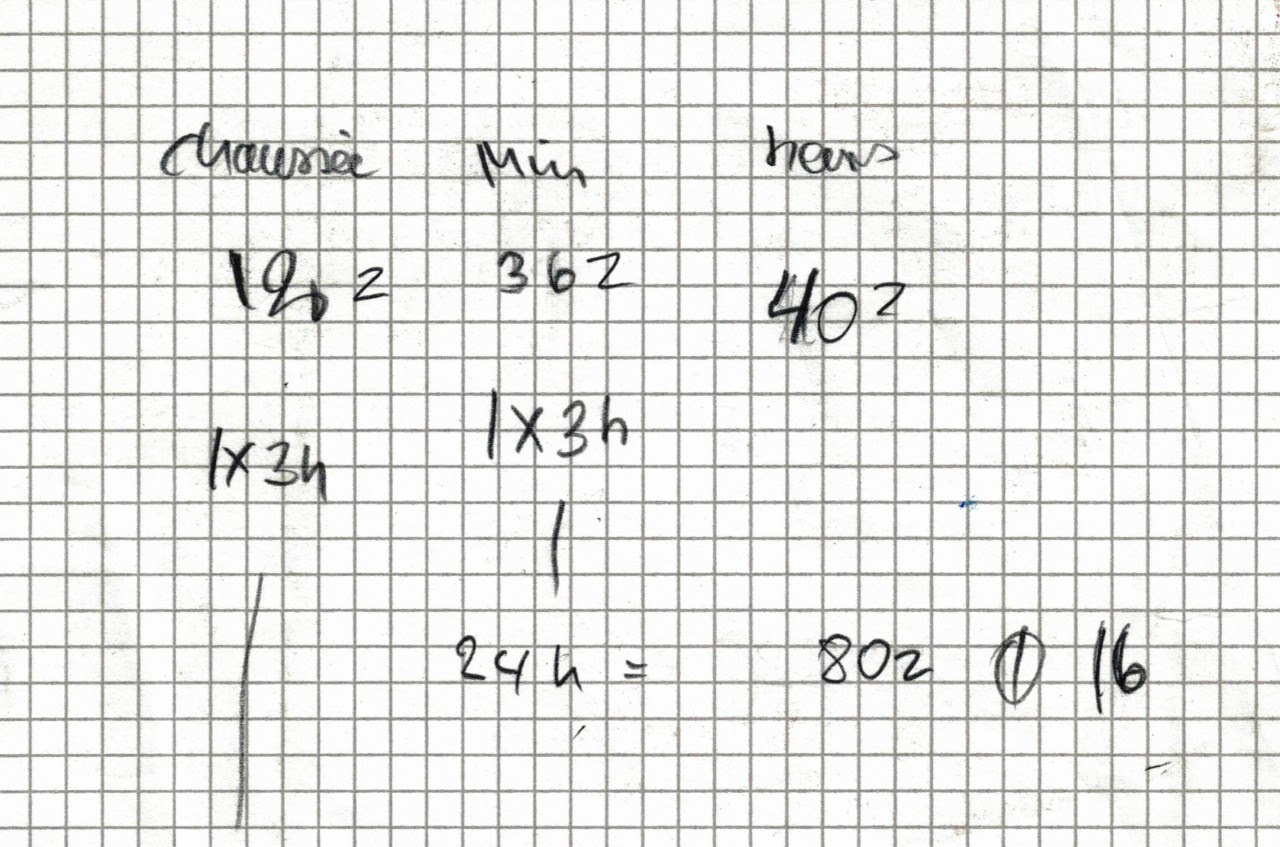 Chaussée Min heurs
12 z 36 z 40 z
1 X 3h 1 X 3h
24 h = 80 z 16